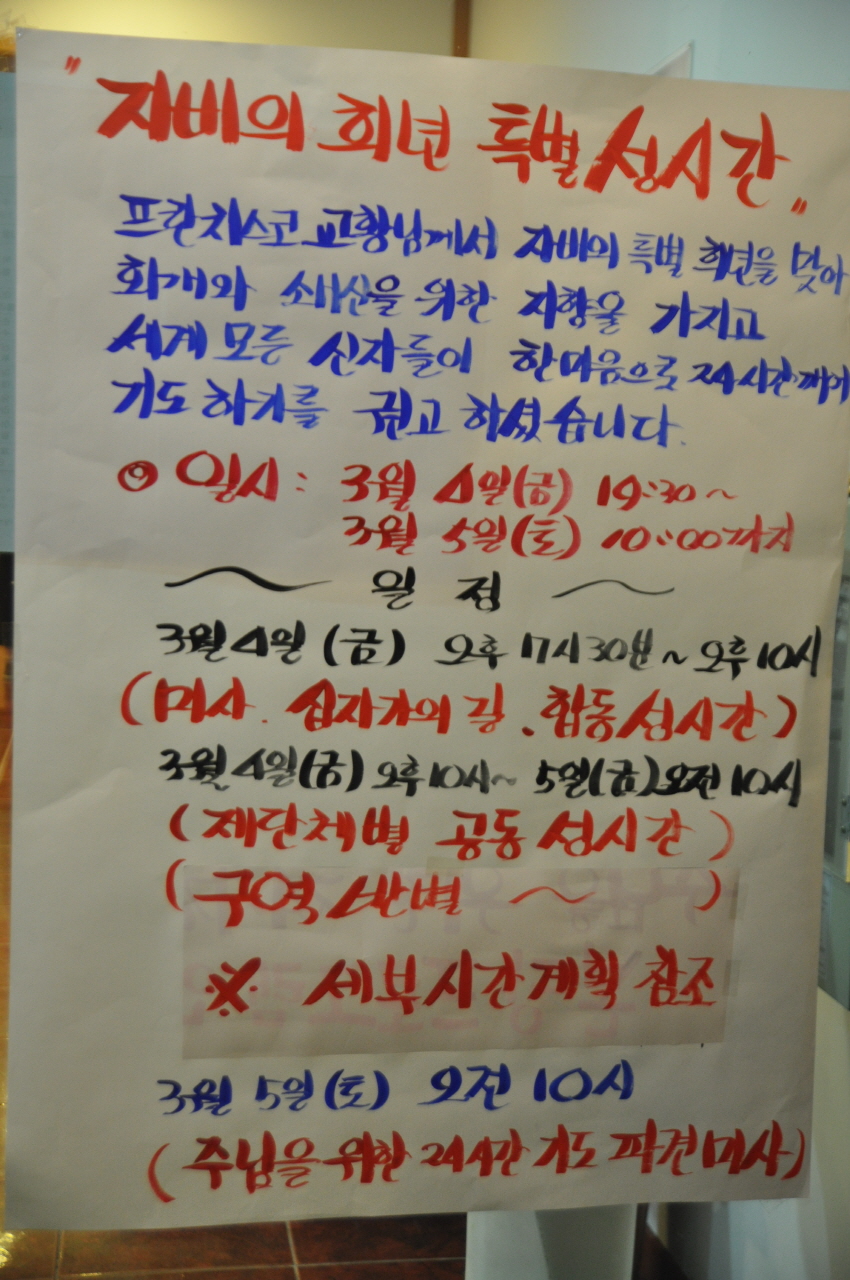 " 자비의 희년 특별 성시간 "
프란치스코 교황님께서 자비의 특별 희년을 맞아
회개와 쇄신을 위한 지향을 가지고
세계 모든 신자들이 한마음으로 24시간 깨어
기도 하기를 권고 하셨습니다.
◎ 일시 : 3월 4일(금) 19:30 ~
3월 5일(토) 10:00까지
~ 일 정 ~
3월 4일 (금) 오후 17시 30분 ~ 오후 10시
(미사. 십자가의 길. 합동 성시간)
3월 4일(금) 오후 10시~ 5일(금) 오전 10시
(제단체별 공동 성시간)
(구역 반별 ~ )
※ 세부시간계획 참조
3월 5일 (토) 오전 10시
(주님을 위한 24시간 기도 파견미사)